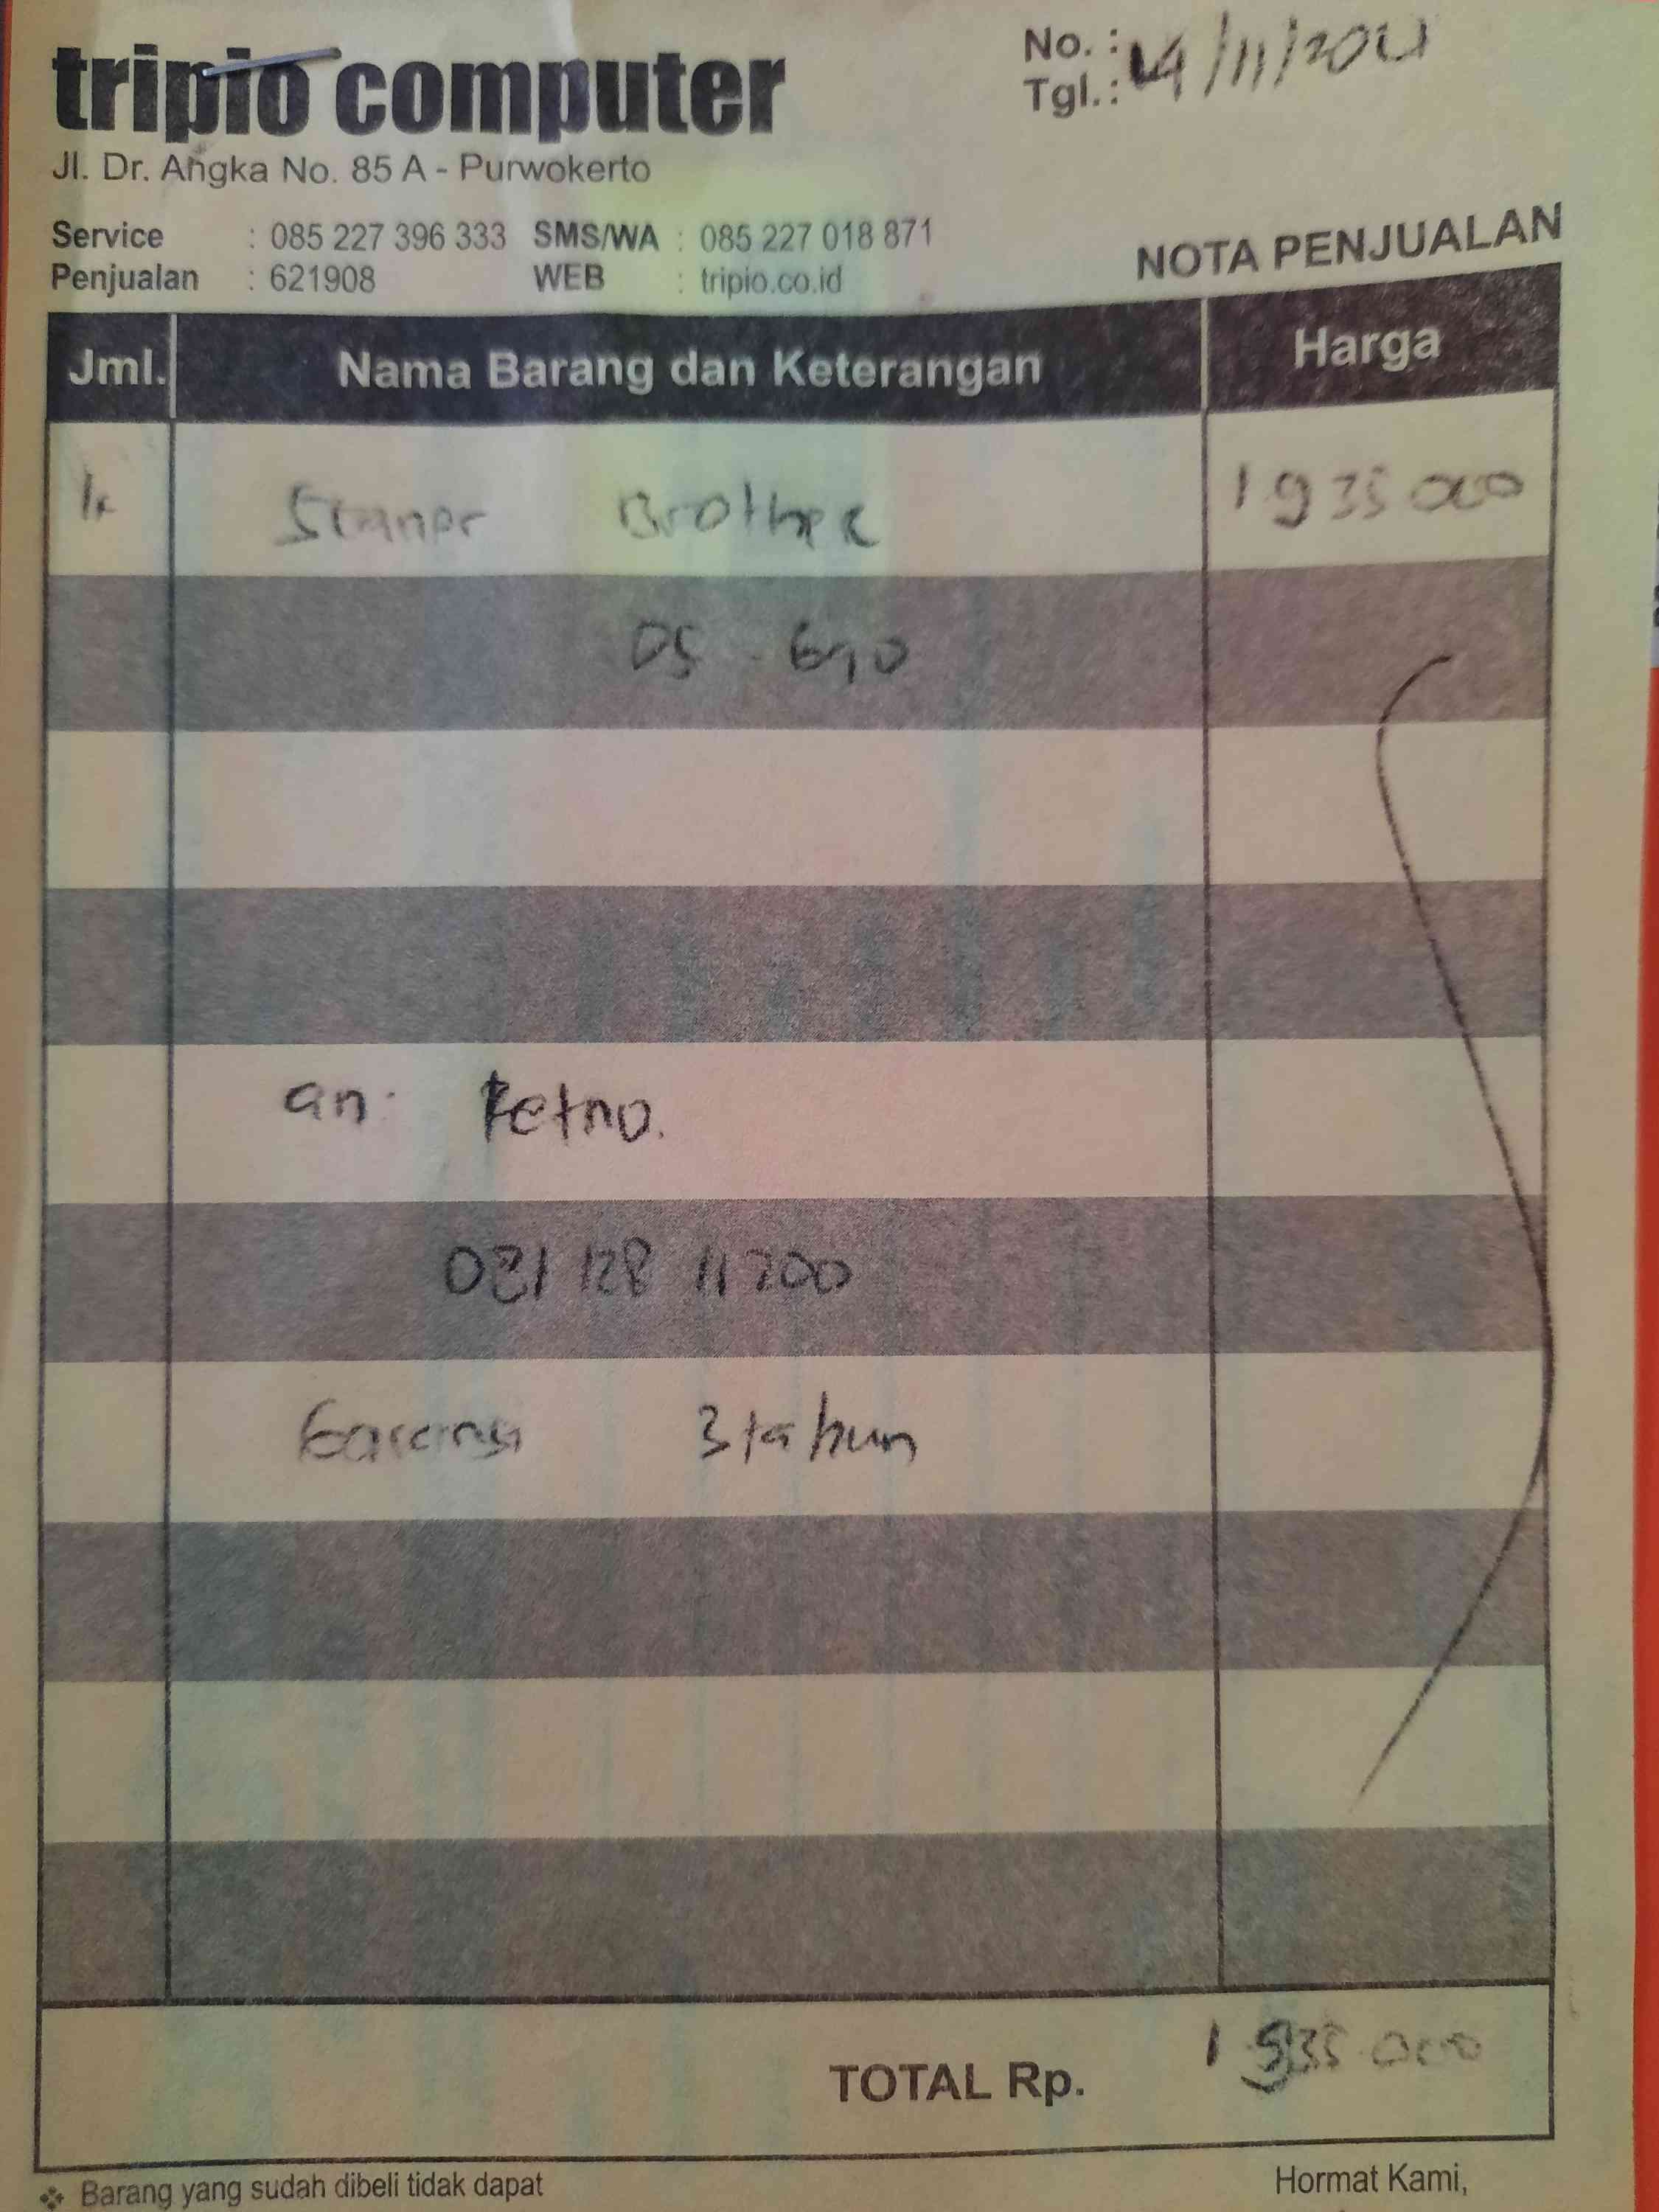 tripio computer
Jl. Dr. Angka No. 85 A - Purwokerto
No. :
Tgl. : /11/2021
Service : 085 227 396 333 SMS/WA : 085 227 018 871
Penjualan : 621908 WEB : tripio.co.id
NOTA PENJUALAN
Jml. Nama Barang dan Keterangan Harga
Brother 1 935 000
DS - 640
an: Retno.
128 11200
Garansi 3 tahun
TOTAL Rp. 1 935 000
❖ Barang yang sudah dibeli tidak dapat
Hormat Kami,